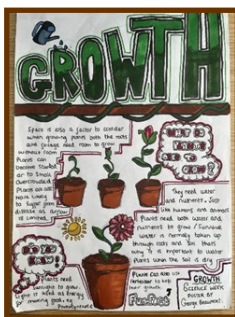 GROWTH
Space is also a factor to consider
when growing plants both the roots
and foliage need room to grow
without room
Plants can
become stunted
or to small.
Overcrowded
Plants are also
more likely
to suffer from
disease as airflow
is limited.
WHAT IS
NEEDED TO
GROW
?
They need water
and nutrients. Just
like humans and animals
Plants need both water and
nutrients to grow / survive
Water is normally taken up
through roots and soil thats
why it is important to water
Plants when the soil is dry
DID YOU
KNOW
Plants need
sunlight to grow.
Light is used as energy
for making food, ie
Photosynthesis
Plants can use
fertiliser to help
their growth.
Fun-Facts
GROWTH
SCIENCE WEEK
POSTER BY
George Beaumont.